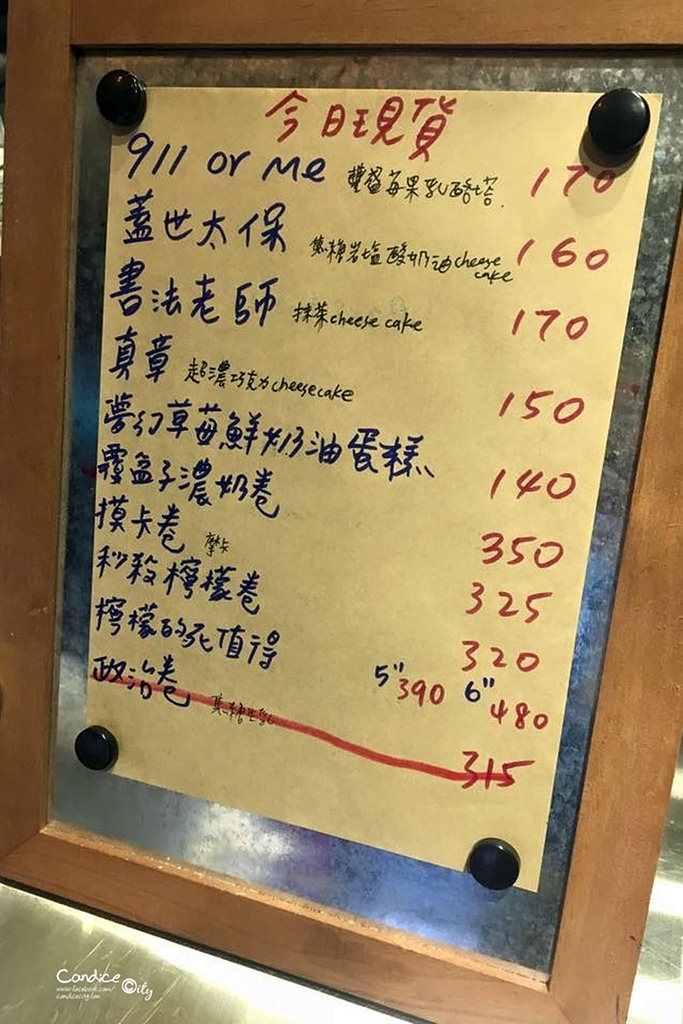 今日現貨
911 or me 雙盔莓果乳酪塔. 170
蓋世太保 焦糖岩塩酸奶油cheese cake 160
書法老師 抹茶cheese cake 170
真章 超濃巧克力cheesecake 150
夢幻草莓鮮奶油蛋糕 140
覆盆子濃奶卷 350
摸卡卷 摩卡 325
秒殺檸檬卷 320
檸檬的死值得 5" 390 6" 480
政治卷 焦糖生乳 315
Candice City
www.facebook.com/
candicecity.fan